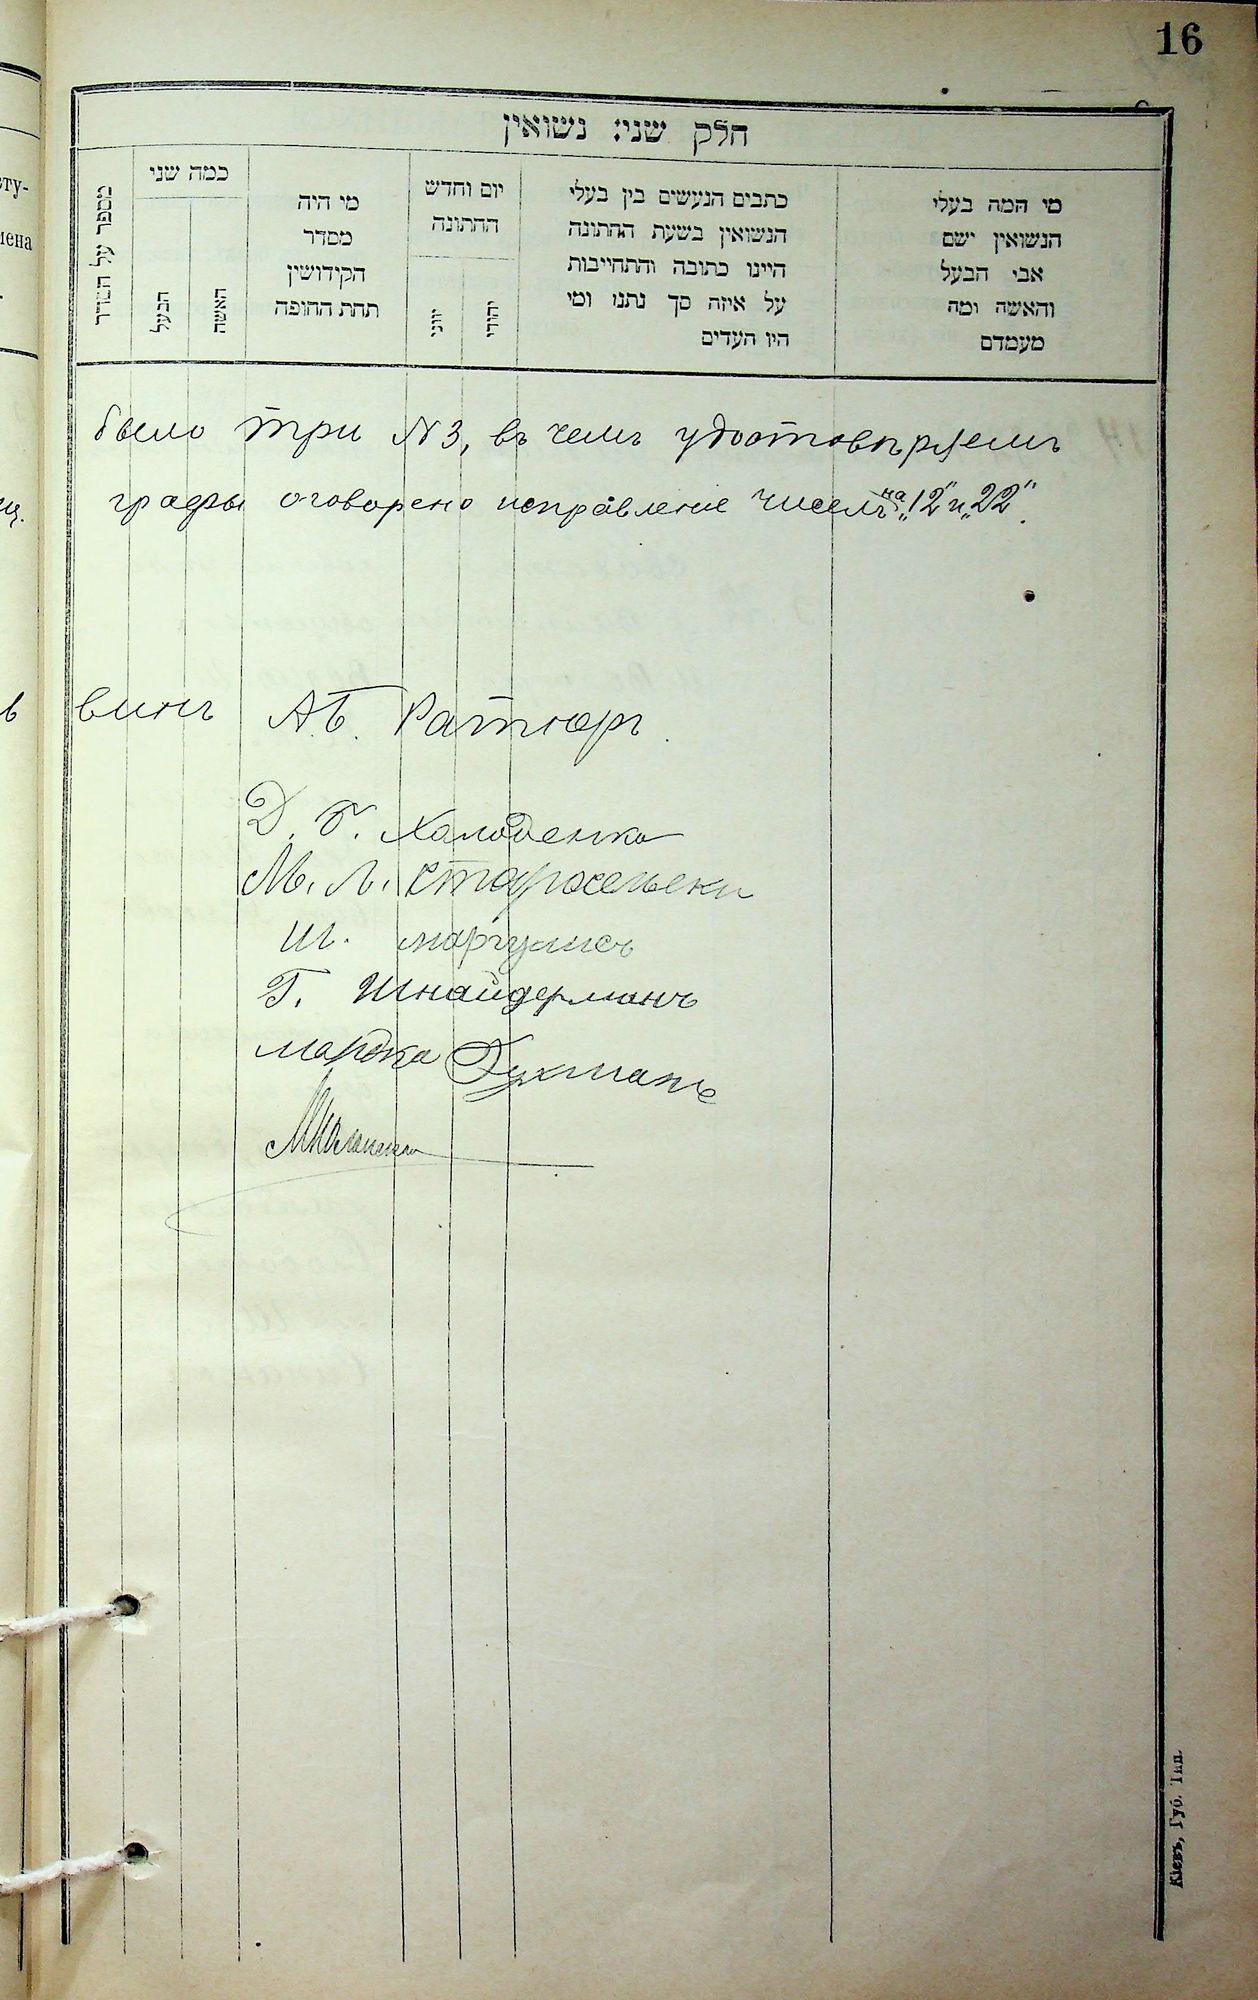 16
חלק שני: נשואין
מי המה בעלי
הנשואין ישם
אבי הבעל
והאשה ומה
מעמדם
כתבים הנעשים בין בעלי
הנשואין בשעת החתונה
היינו כתובה והתחייבות
על איזה סך נתנו ומי
היו העדים
יום וחדש
החתונה
יהודי
יווני
מי היה
מסדר
הקידושין
תחת החופה
כמה שני
האשה
הבעל
מספר על הסדר
было три №3, въ чемъ удостовѣряемъ
графы оговорено исправленіе чиселъ на „12" и „22".
винъ А. Б. Ратнеръ.
Д. Б. Холоденко
М. Л. Старосельски
Ш. Маргулисъ
Г. Шнайдерманъ
Мордко Гухманъ
Кіевъ, Губ. Тип.